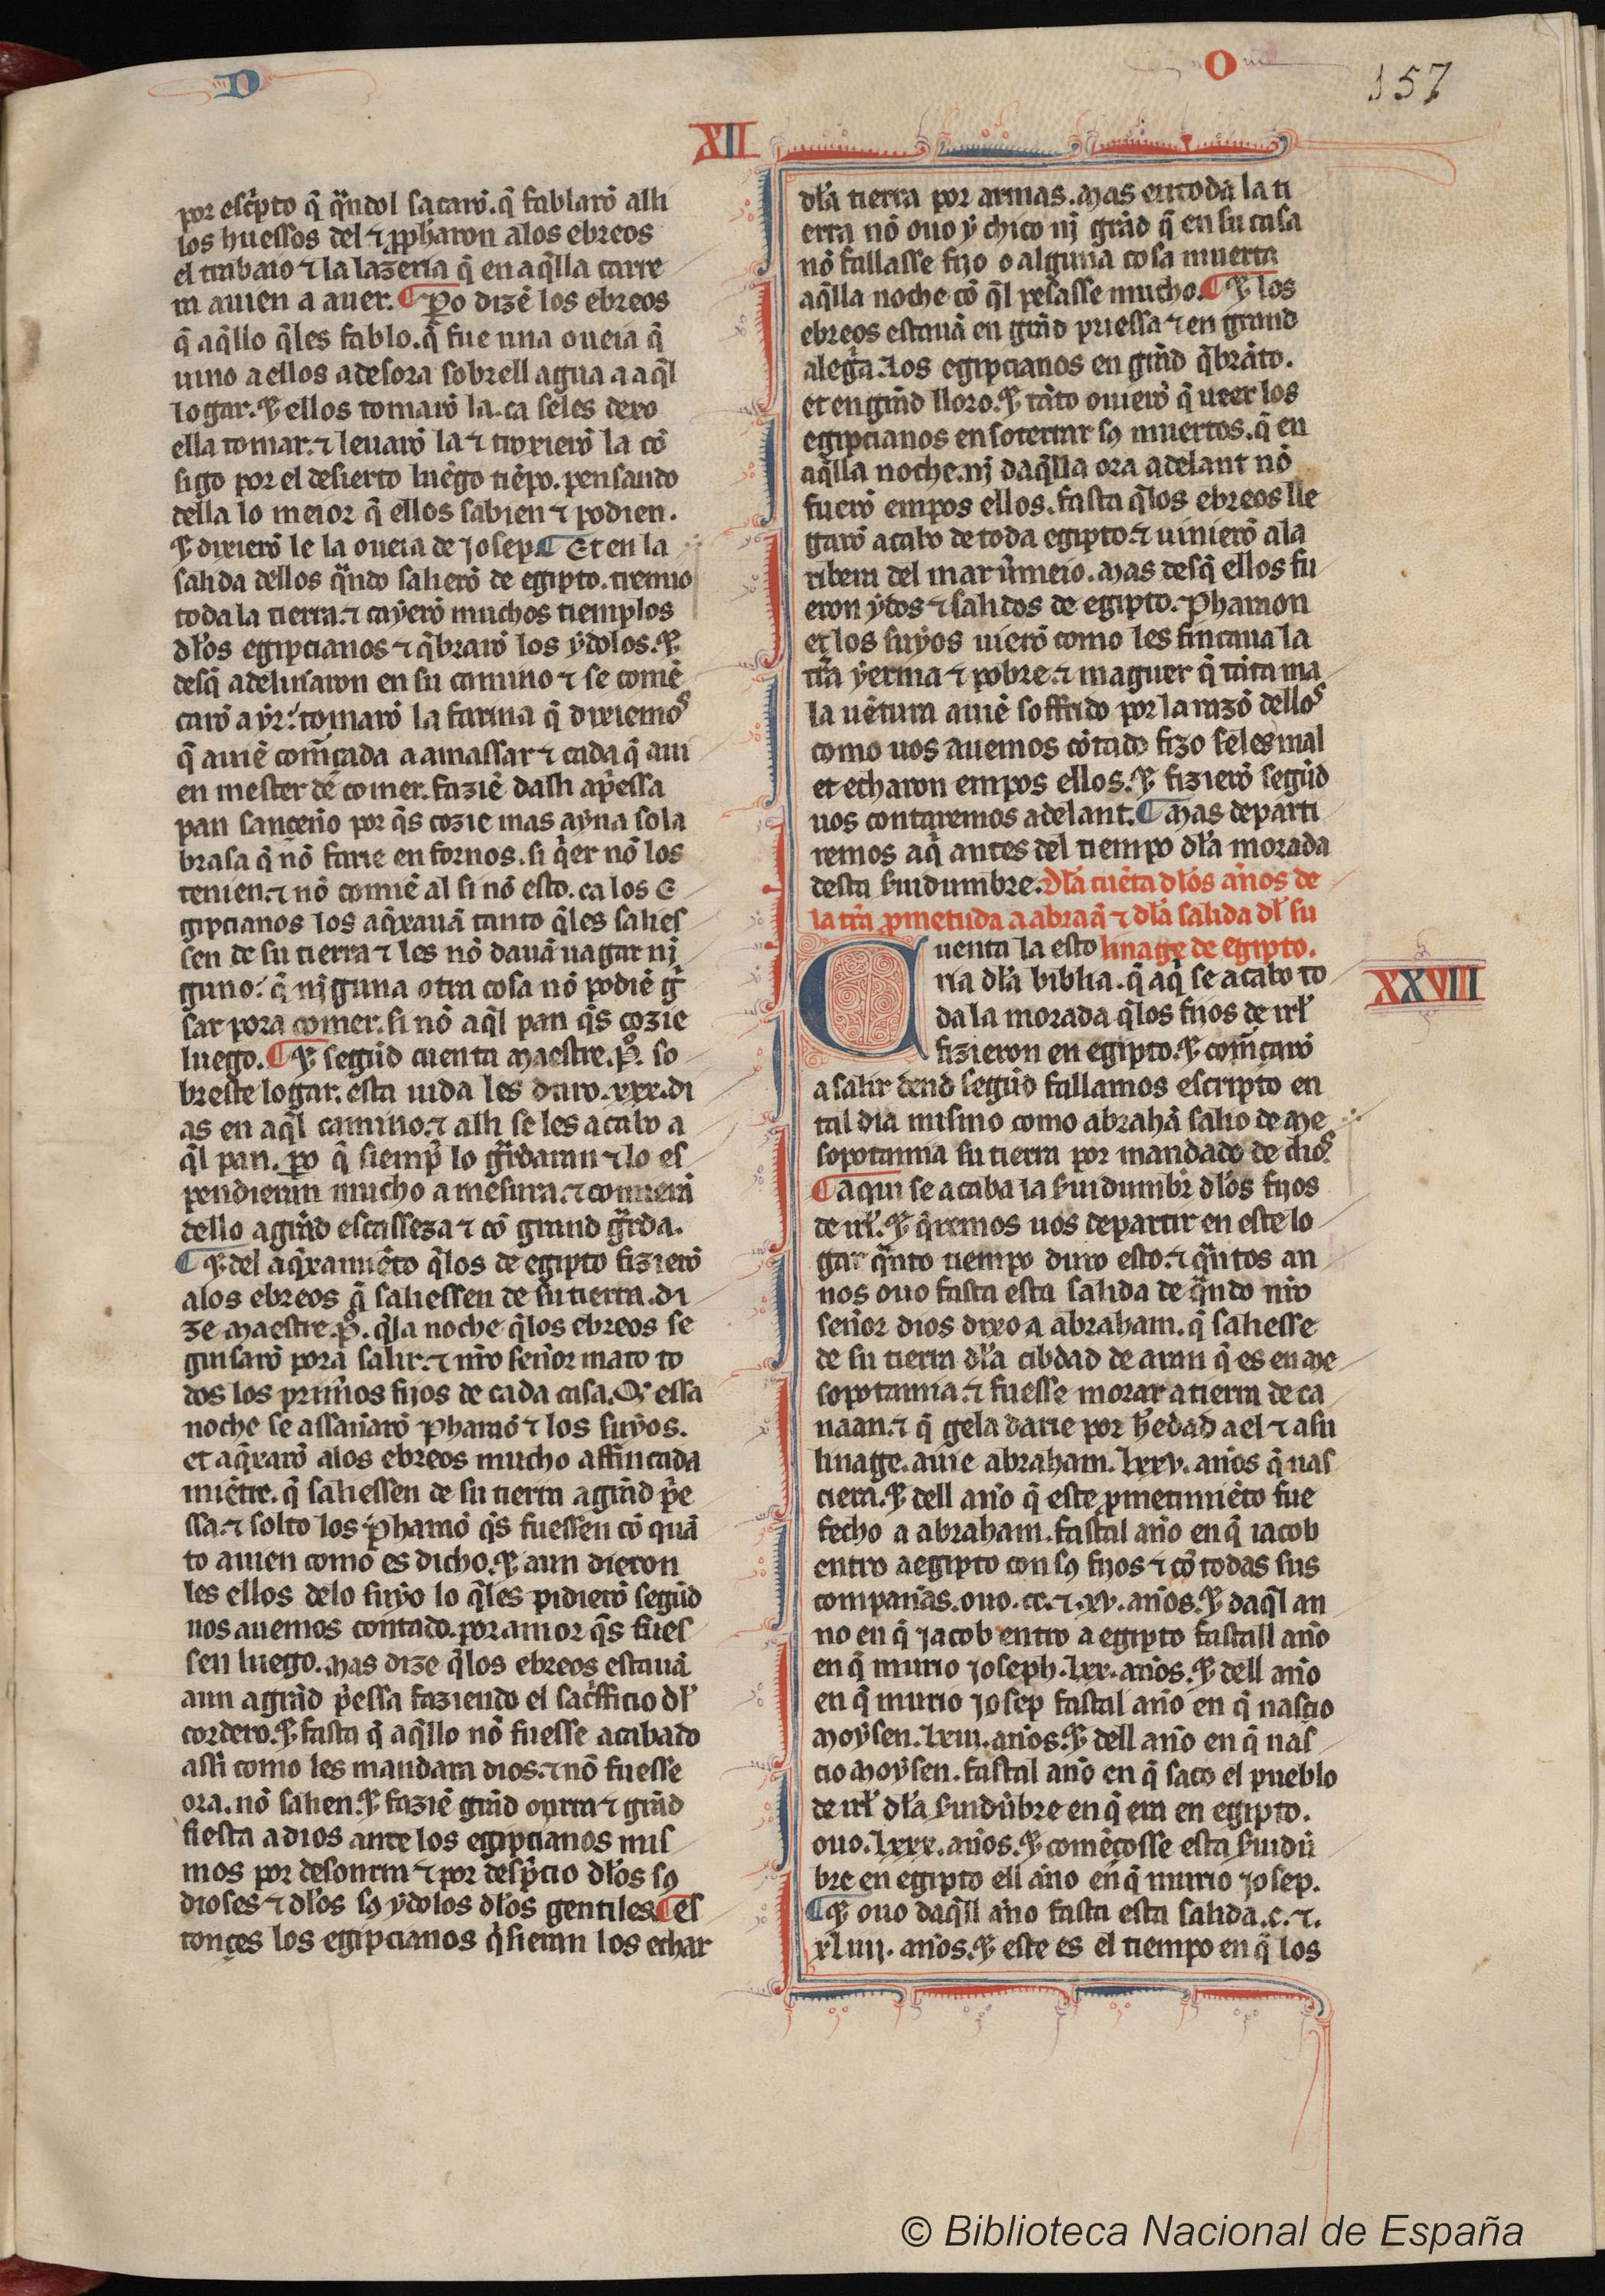 D
O
157
XII
por esc̃pto q̃ q̃ndol sacarõ. q̃ fablarõ alli
los huessos del ⁊ p̃pharon alos ebreos
el trabaio ⁊ la lazeria q̃ en aq̃lla carre
ra auien a auer. ¶ P̃o dizẽ los ebreos
q̃ aq̃llo q̃les fablo. q̃ fue una oueia q̃
uino a ellos adesora sobrell agua a aq̃l
logar. ⁊ ellos tomarõ la. ca seles dexo
ella tomar. ⁊ leuarõ la ⁊ troxierõ la cõ
sigo por el desierto luẽgo tiẽpo. pensando
della lo meior q̃ ellos sabien ⁊ podien.
⁊ dixierõ le la oueia de Josep. ¶ Et en la
salida dellos q̃ndo salierõ de egipto. tremio
toda la tierra. ⁊ cayerõ muchos tiemplos
dłos egipcianos ⁊ q̃brarõ los ydolos. ⁊
desq̃ adelinaron en su camino ⁊ se comẽ
carõ a yr. tomarõ la farina q̃ dixiemos
q̃ auiẽ com̃çada a amassar ⁊ cada q̃ aui
en mester de comer. faziẽ dalli ap̃essa
pan sanceño por q̃s cozie mas ayna sola
brasa q̃ nõ farie en fornos. si q̃er nõ los
tenien. ⁊ nõ comiẽ al si nõ esto. ca los e
gipcianos los aq̃xauã tanto q̃les salies
sen de su tierra ⁊ les nõ dauã uagar nj
guno. q̃ njguna otra cosa nõ podiẽ g̃
sar pora comer. si nõ aq̃l pan q̃s cozie
luego. ¶ ⁊ segũd cuenta maestre. P̊. so
breste logar. esta uida les duro. xxx. di
as en aq̃l camino. ⁊ alli se les acabo a
q̃l pan. p̃o q̃ siemp̃ lo g̃rdaran ⁊ lo es
pendieran mucho a mesura. ⁊ comiera
dello a grãd escasseza ⁊ cõ grand g̃rda.
¶ ⁊ del aq̃xamiẽto q̃los de egipto fizierõ
alos ebreos q̃ saliessen de su tierra. di
ze maestre. P̊. q̃la noche q̃los ebreos se
guisarõ pora salir. ⁊ nr̃o señor mato to
dos los prim̃os fijos de cada casa. Q̃ essa
noche se assañarõ Pharaõ ⁊ los suyos.
et aq̃xarõ alos ebreos mucho affincada
miẽtre. q̃ saliessen de su tierra a grãd p̃e
ssa. ⁊ solto los Pharaõ q̃s fuessen cõ quã
to auien como es dicho. ⁊ aun dieron
les ellos delo suyo lo q̃les pidierõ segũd
uos auemos contado. por amor q̃s fues
sen luego. Mas dize q̃los ebreos estauã
aun a grãd p̃essa faziendo el sac̃fficio dł
cordero. ⁊ fasta q̃ aq̃llo nõ fuesse acabado
assi como les mandara dios. ⁊ nõ fuesse
ora. nõ salien. ⁊ faziẽ grãd onrra ⁊ grãd
fiesta a dios ante los egipcianos mis
mos por desonrra ⁊ por desp̃cio dłos sꝯ
dioses ⁊ dłos sꝯ ydolos dłos gentiles. ¶ Es
tonçes los egipcianos q̃sieran los echar
dła tierra por armas. Mas en toda la ti
erra nõ ouo y chico nj grãd q̃ en su casa
nõ fallasse fijo o alguna cosa muerta
aq̃lla noche cõ q̃l pesasse mucho. ¶ ⁊ los
ebreos estauã en grãd priessa ⁊ en grand
aleg̃a. los egipcianos en grãd q̃brãto.
et en grãd lloro. ⁊ tãto ouierõ q̃ ueer los
egipcianos en soterrar sꝯ muertos. q̃ en
aq̃lla noche. nj daq̃lla ora adelant nõ
fuerõ empos ellos. fasta q̃los ebreos lle
garõ acabo de toda egipto. ⁊ uinierõ ala
ribera del mar ũmeio. Mas desq̃ ellos fu
eron ydos ⁊ salidos de egipto. Pharaon
et los suyos uierõ como les fincaua la
tr̃a yerma ⁊ pobre. ⁊ maguer q̃ tãta ma
la uẽtura auiẽ soffrido por la razõ dellos
como uos auemos cõtado fizo seles mal
et echaron empos ellos. ⁊ fizierõ segũd
uos contaremos adelant. ¶ Mas departi
remos aq̃ antes del tiempo dła morada
desta s̃uidumbre. Dła cuẽta dłos años de
la tr̃a p̃metuda a abraã ⁊ dła salida dł su
linage de egipto.
XXVIII
Cuenta la esto
ria dła biblia. q̃ aq̃ se acabo to
da la morada q̃los fijos de isrł
fizieron en egipto. ⁊ com̃çarõ
a salir dend segũd fallamos escripto en
tal dia mismo como abrahã salio de me
sopotamia su tierra por mandado de dios.
¶ Aqui se acaba la s̃uidumbr̃ dłos fijos
de isrł. ⁊ q̃remos uos departir en este lo
gar q̃nto tiempo duro esto. ⁊ q̃ntos an
nos ouo fasta esta salida de q̃ndo nr̃o
señor dios dixo a abraham. q̃ saliesse
de su tierra dła cibdad de aran q̃ es en me
sopotamia. ⁊ fuesse morar a tierra de ca
naan. ⁊ q̃ gela darie por h̃edad a el ⁊ a su
linage. auie abraham. lxxv. años q̃ nas
ciera. ⁊ dell año q̃ este p̃metimiẽto fue
fecho a abraham. fastal año en q̃ iacob
entro a egipto con sꝯ fijos ⁊ cõ todas sus
compañas. ouo. cc. ⁊. xv. años. ⁊ daq̃l an
no en q̃ Jacob entro a egipto fastall año
en q̃ murio Joseph. lxx. años. ⁊ dell año
en q̃ murio Josep fastal año en q̃ nascio
Moysen. lxiiij. años. ⁊ dell año en q̃ nas
cio Moysen. fastal año en q̃ saco el pueblo
de isrł dła s̃uidũbre en q̃ era en egipto.
ouo. lxxx. años. ⁊ comẽçosse esta s̃uidũ
bre en egipto ell año en q̃ murio Josep.
¶ ⁊ ouo daq̃ll año fasta esta salida. c. ⁊.
xliiij. años. ⁊ este es el tiempo en q̃ los
© Biblioteca Nacional de España